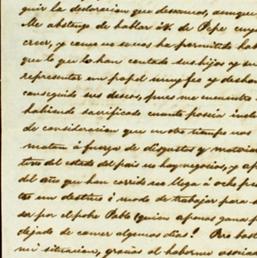 guir la declaracion que deseamos, aunque
Me abstengo de hablar de Pepe cuya
creer, y como no se nos ha permitido habl
que lo que lo han contado sus hijos y su
representar en papel muy feo y deshon
conseguido sus deseos, pues me encuentro
habiendo sacrificado cuanto poseia incl
de consideracion que en otro tiempo nos
matan á fuerza de disgustos y
tivos del estado del pais no hay negocios, y a
del año que han corrido no llega á ocho pe
tes un destino ó modo de trabajar para
ser por el pobre Pablo (quien apenas gana p
dejado de comer algunos dias! Pero basta
mi situacion, gracias al haberme asocia